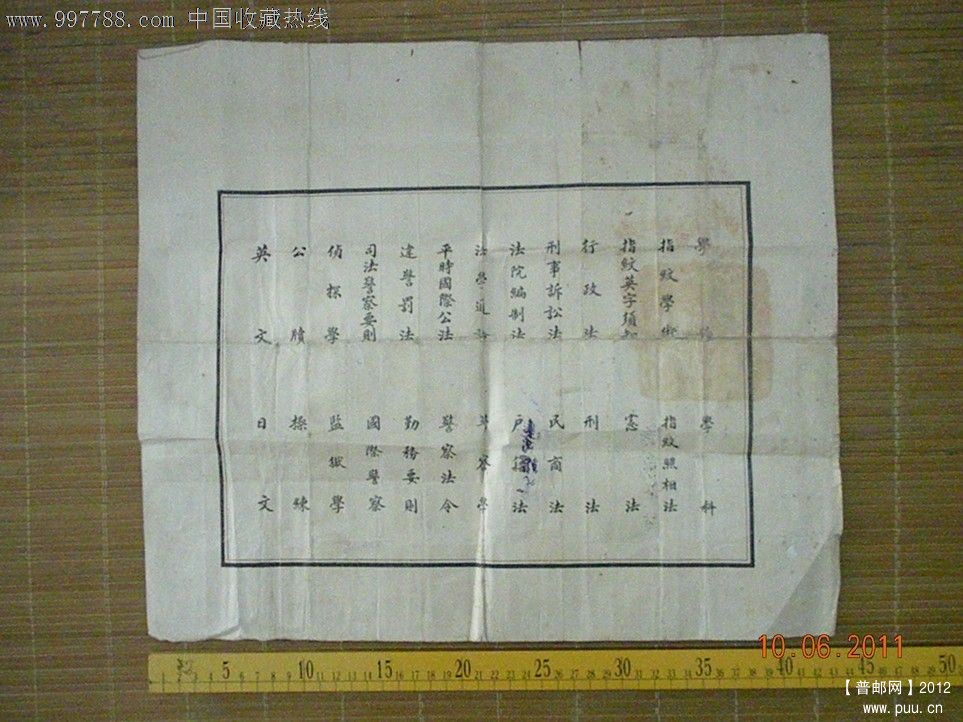 www.997788.com 中国收藏热线
學 科
指紋學術 指紋照相法
指紋英字須知 憲法
行政法 刑法
刑事訴訟法 民商法
法院編制法 戶籍法
法學通論 警察學
平時國際公法 警察法令
違警罰法 勤務要則
司法警察要則 國際警察
偵探學 監獄學
公牘 操練
英文 日文
10.06.2011
5 10 15 20 25 30 35 40 45 50
【普邮网】2012
www.puu.cn